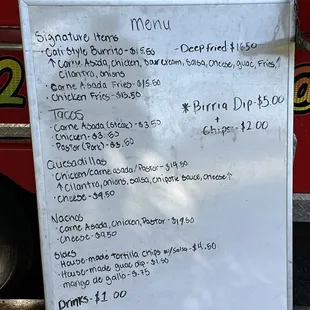 Menu
Signature Items
- Cali Style Burrito - $15.50 - Deep fried $16.50
↑ Carne Asada, chicken, sour cream, salsa, cheese, guac, Fries ↑
Cilantro, onions
- Carne Asada Fries - $15.50
- Chicken Fries - $15.50
*Birria Dip - $5.00
+
Chips - $2.00
Tacos
- Carne Asada (steak) - $3.50
- Chicken - $3.50
- Pastor (Pork) - $3.50
Quesadillas
- Chicken/carne asada/Pastor - $14.50
↑ Cilantro, onions, salsa, chipotle sauce, cheese ↑
- Cheese - $9.50
Nachos
- Carne Asada, Chicken, Pastor - $14.50
- Cheese - $9.50
Sides
- House-made tortilla chips w/salsa - $4.50
- House-made guac dip - $1.50
mango de gallo - $.75
Drinks - $1.00